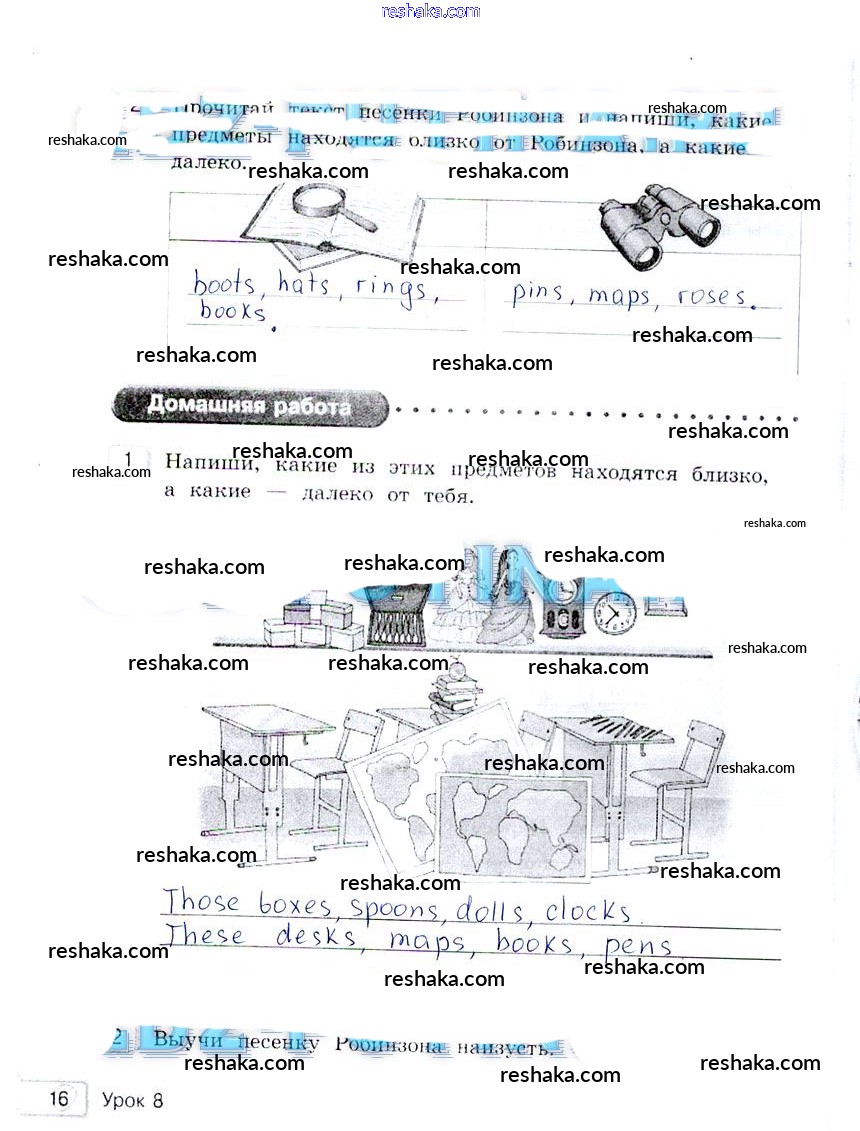 reshaka.com
2 Прочитай текст песенки Робинзона и напиши, какие
предметы находятся близко от Робинзона, а какие
далеко.
boots, hats, rings,
books.
pins, maps, roses.
Домашняя работа
1 Напиши, какие из этих предметов находятся близко,
а какие — далеко от тебя.
Those boxes, spoons, dolls, clocks.
These desks, maps, books, pens
2 Выучи песенку Робинзона наизусть.
16 Урок 8